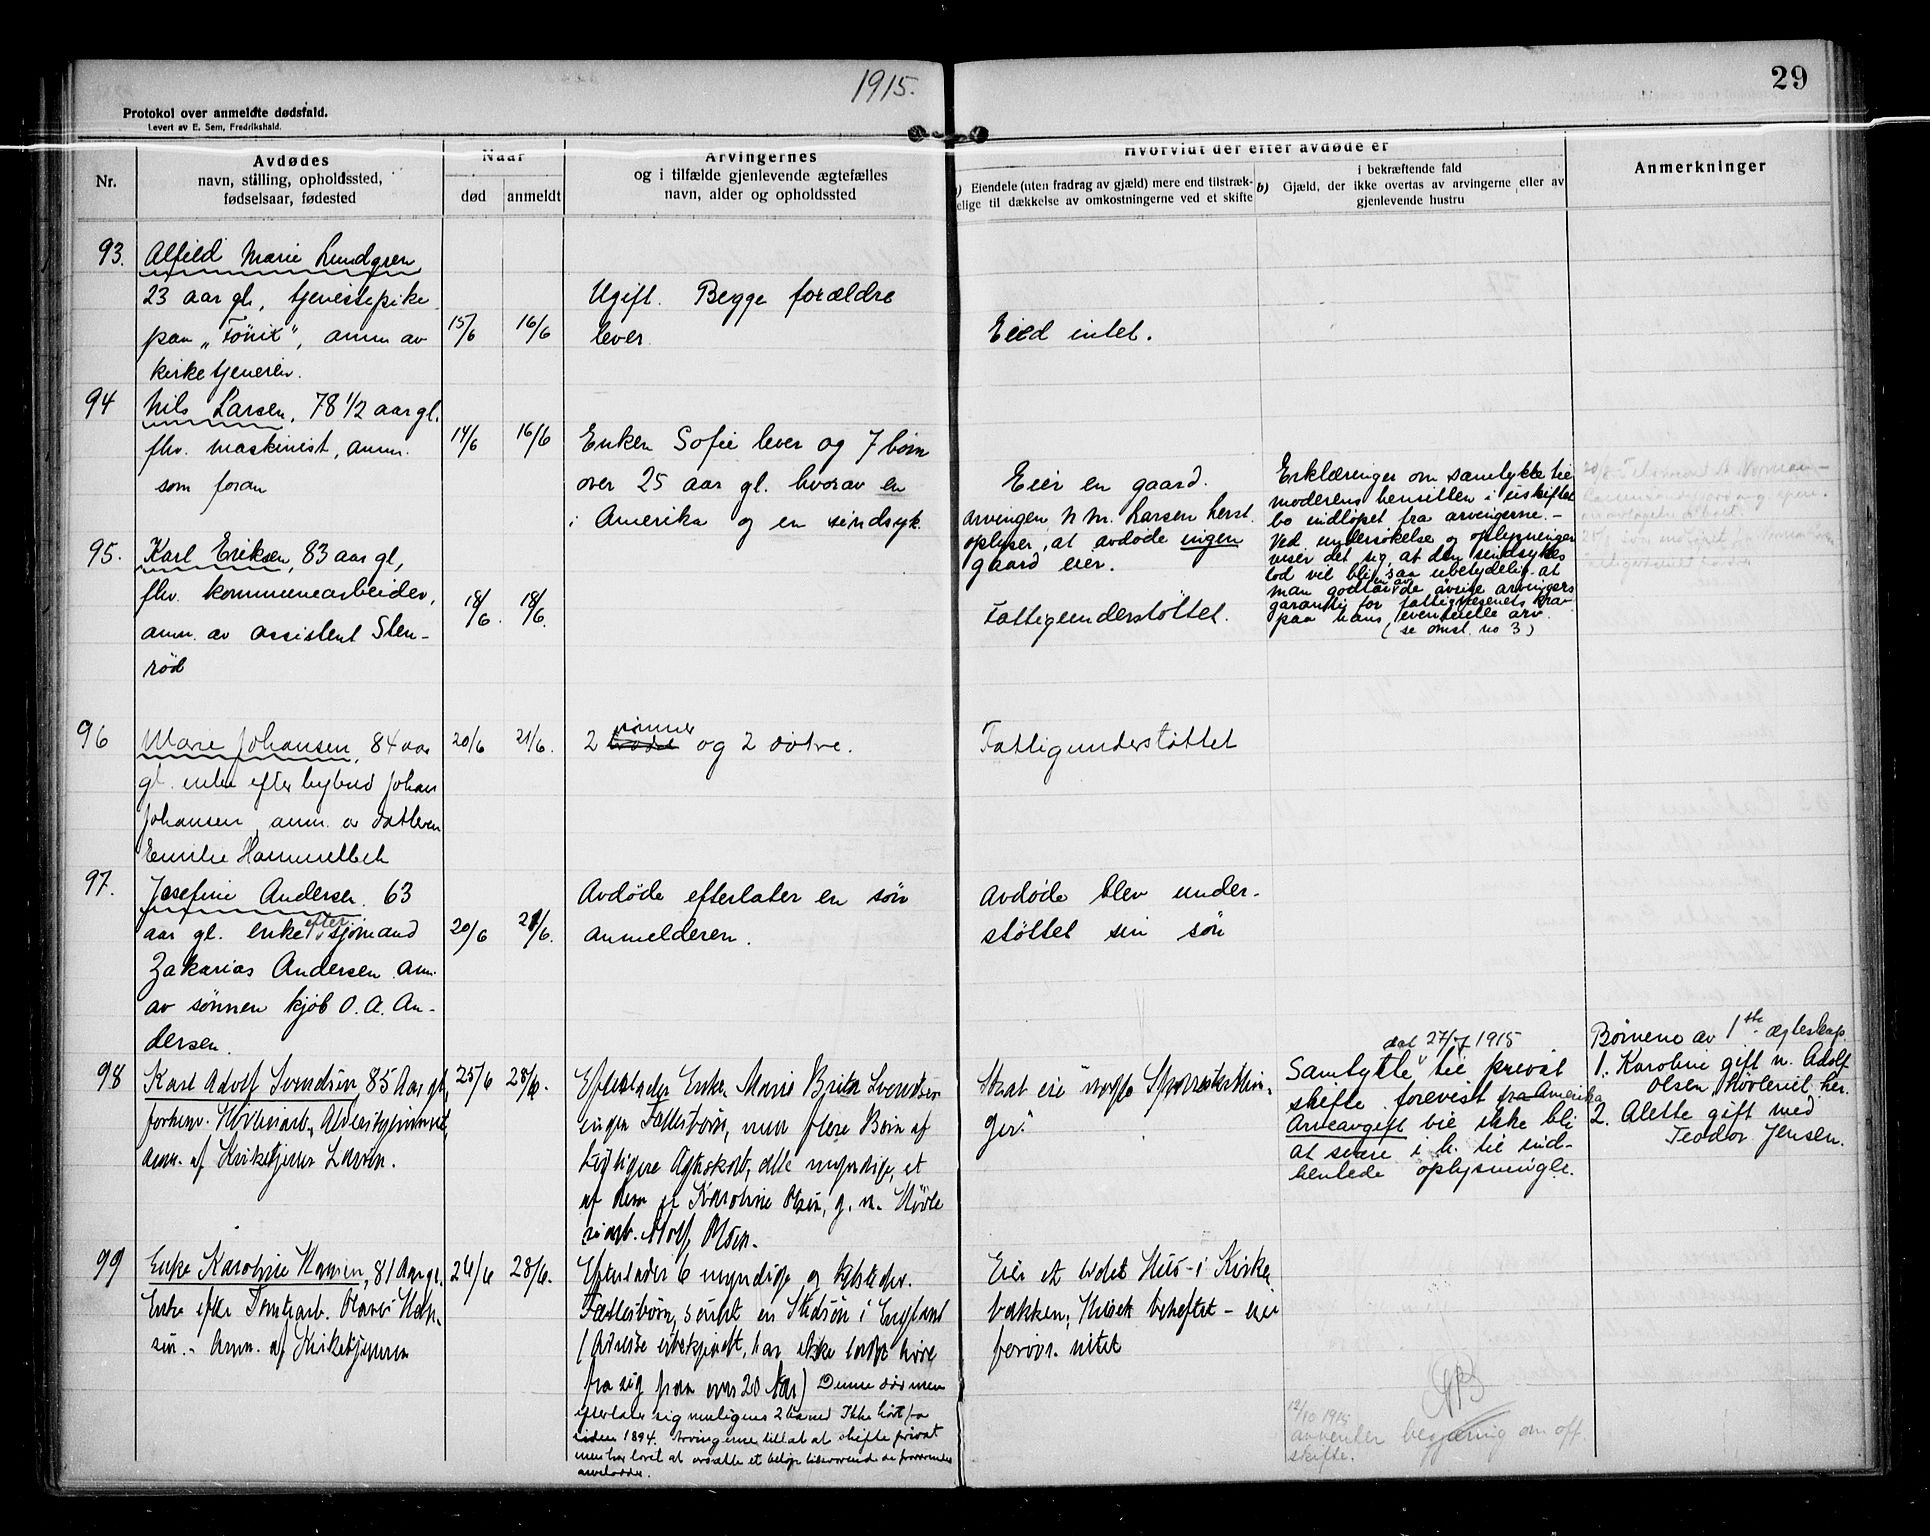 1915.
29
Protokol over anmeldte dødsfald.
Levert av E. Sem, Fredrikshald.
Nr.
Avdødes
navn, stilling, opholdssted,
fødselsaar, fødested
Naar
død
anmeldt
Arvingernes
og i tilfælde gjenlevende ægtefælles
navn, alder og opholdssted
Hvorvidt der efter avdøde er
a) Eiendele (uten fradrag av gjæld) mere end tilstræk-
kelige til dækkelse av omkostningerne ved et skifte
i bekræftende fald
b) Gjæld, der ikke overtas av arvingerne eller av
gjenlevende hustru
Anmerkninger
93.
Alfild Marie Lundgren
23 aar gl, tjenestepike
paa „Fönix", anm av
kirketjeneren.
15/6
16/6
Ugift. Begge forældre
lever.
Eied intet.
94
Nils Larsen, 78 1/2 aar gl.
fhv. maskinist, anm.
som foran
14/6
16/6
Enken Sofie lever og 7 børn
over 25 aar gl. hvorav en
i Amerika og en sindsyk.
Eier en gaard.
Arvingen N M. Larsen herst.
oplyser, at avdøde ingen
gaard eier.
Erklæringer om samtykke til
moderens hensitten i uskiftet
bo indløpet fra arvingerne. -
Ved undersøkelse og oplysninger
viser det sig, at den sindsykes
lod vil bli saa ubetydelig at
man godtar de øvrige arvingers
garanti for fattigvæsenets krav
paa hans eventuelle arv.
(se omst. no 3)
95.
Karl Eriksen, 83 aar gl,
fhv. kommunearbeider,
anm. av assistent Sten-
rød
18/6.
18/6.
Fattigunderstøttet.
96
Marie Johansen, 84 aar
gl. enke efter bybud Johan
Johansen, anm. av datteren
Emilie Hammelbek
20/6
21/6.
2 sønner og 2 døtre.
Fattigunderstøttet
97.
Josefine Andersen. 63
aar gl. enke efter sjømand
Zakarias Andersen. anm.
av sønnen kjøb O. A. An-
dersen.
20/6
21/6.
Avdøde efterlater en søn
anmelderen.
Avdøde blev under-
støttet sin søn
98
Karl Adolf Svendsen, 85 Aar gl,
forhenv. Høvleriarb., Aldershjemmet,
anm. af Kirketjener Larsen.
25/6
28/6.
Efterlader Enke Marie Brita Svendsen
ingen Fællesbørn, men flere Børn af
tidligere Ægteskab, alle myndige, et
af dem er Karoline Olsen, g. m. Høvle
riarb. Adolf Olsen.
Skal eie nogle Spareskillin-
ger.
dat 27/7 1915
Samtykke til privat
skifte forevist fra Amerika
Arveavgift vil ikke bli
at svare i h. til ind-
hentede oplysninger.
Børnene av 1ste ægteskap
1. Karoline gift m. Adolf
Olsen, Høvleriet, her.
2. Alette gift med
Teodor Jensen.
99
Enke Karoline Hansen, 81 Aar gl.
Enke efter Tomtearb. Olaves Han-
sen. - Anm. af Kirketjeneren
26/6
28/6.
Efterlader 6 myndige og tilstedev.
Fællesbørn, samt en Stedsøn i England
(Adresse ubekjendt, har ikke ladet høre
fra sig paa over 20 Aar) Denne død men
efterlater sig muligens 2 barn Ikke hørt fra
siden 1894. Arvingerne tillat at skifte privat
men har lovet at avsætte et beløp tilsvarende de fraværendes
arvelodder.
Eier et lidet Hus i Kirke
bakken, Huset beheftet - eier
forøvr. intet
12/10 1915
avventer begjæring om off
skifte.